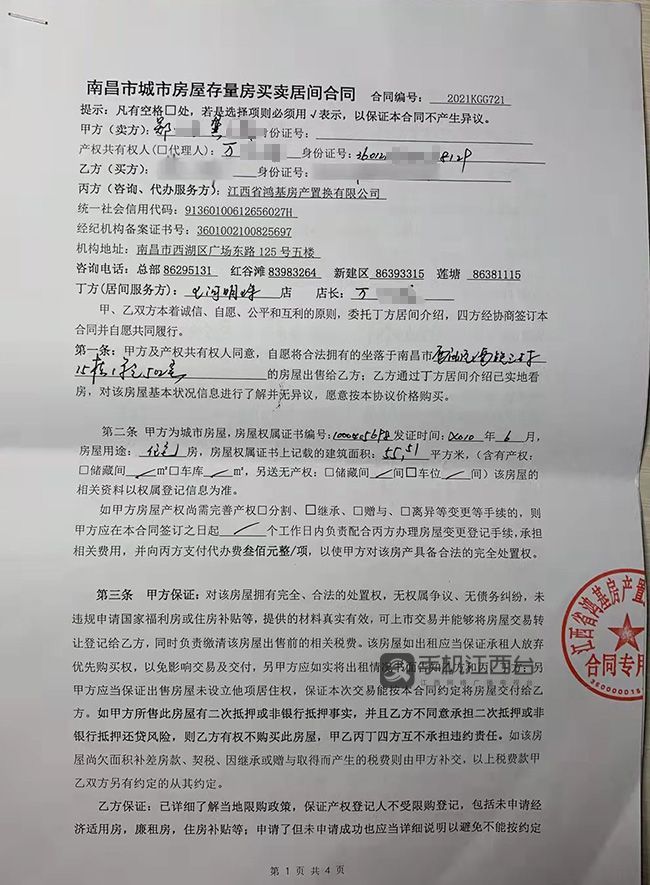 南昌市城市房屋存量房买卖居间合同 合同编号: 2021KGG721
提示: 凡有空格□处, 若是选择项则必须用√表示, 以保证本合同不产生异议。
甲方(卖方): 龚 身份证号:
产权共有权人(□代理人): 万 身份证号: 36012 8129
乙方(买方): 身份证号:
丙方(咨询、代办服务方): 江西省鸿基房产置换有限公司
统一社会信用代码: 91360100612656027H
经纪机构备案证书号: 3601002100825697
机构地址: 南昌市西湖区广场东路125号五楼
咨询电话: 总部 86295131 红谷滩 83983264 新建区 86393315 莲塘 86381115
丁方(居间服务方): 明珠 店 店长: 万
甲、乙双方本着诚信、自愿、公平和互利的原则, 委托丁方居间介绍, 四方经协商签订本
合同并自愿共同履行。
第一条: 甲方及产权共有权人同意, 自愿将合法拥有的坐落于南昌市西湖区
15栋1单元502室 的房屋出售给乙方; 乙方通过丁方居间介绍已实地看
房, 对该房屋基本状况信息进行了解并无异议, 愿意按本协议价格购买。
第二条 甲方为城市房屋, 房屋权属证书编号: 发证时间: 2010 年 6 月,
房屋用途: 住宅 房, 房屋权属证书上记载的建筑面积: 55.51 平方米, (含有产权:
□储藏间 / ㎡□车库 / ㎡, 另送无产权: □储藏间 / 间□车位 / 间) 该房屋的
相关资料以权属登记信息为准。
如甲方房屋产权尚需完善产权□分割、□继承、□赠与、□离异等变更等手续的, 则
甲方应在本合同签订之日起 / 个工作日内负责配合丙方办理房屋变更登记手续, 承担
相关费用, 并向丙方支付代办费叁佰元整/项, 以使甲方对该房产具备合法的完全处置权。
第三条 甲方保证: 对该房屋拥有完全、合法的处置权, 无权属争议、无债务纠纷, 未
违规申请国家福利房或住房补贴等, 提供的材料真实有效, 可上市交易并能够将房屋交易转
让登记给乙方, 同时负责缴清该房屋出售前的相关税费。该房屋如出租应当保证承租人放弃
优先购买权, 以免影响交易及交付, 另甲方应如实将出租情况书面告知乙丙丁三方; 另
甲方应当保证出售房屋未设立他项居住权, 保证本次交易能按本合同约定将房屋交付给乙
方。如甲方所售此房屋有二次抵押或非银行抵押事实, 并且乙方不同意承担二次抵押或非
银行抵押还贷风险, 则乙方有权不购买此房屋, 甲乙丙丁四方互不承担违约责任。如该房
屋尚欠面积补差房款、契税、因继承或赠与取得而产生的税费则由甲方补交, 以上税费款甲
乙双方另有约定的从其约定。
乙方保证: 已详细了解当地限购政策, 保证产权登记人不受限购登记, 包括未申请经
济适用房, 廉租房, 住房补贴等; 申请了但未申请成功也应当详细说明以避免不能按约定
第 1 页 共 4 页
江西省鸿基房产置
合同专用
手机江西台
江西网络广播电视台